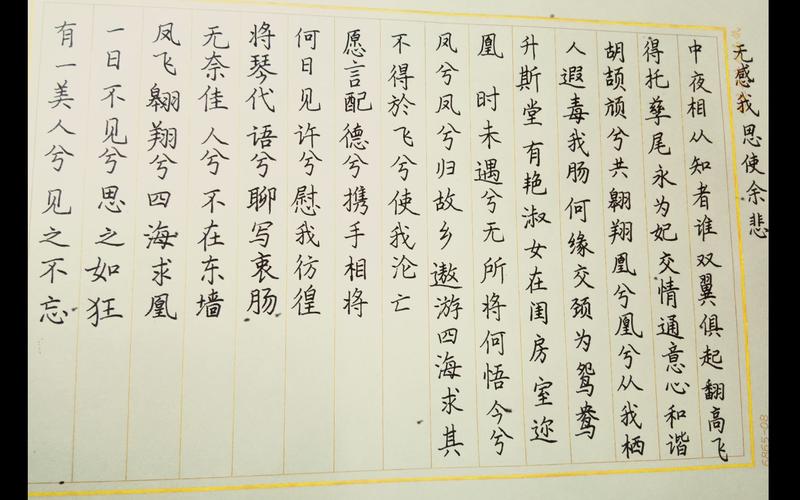 有一美人兮 见之不忘
一日不见兮 思之如狂
凤飞翱翔兮 四海求凰
无奈佳人兮 不在东墙
将琴代语兮 聊写衷肠
何日见许兮 慰我彷徨
愿言配德兮 携手相将
不得於飞兮 使我沦亡
凤兮凤兮归故乡 遨游四海求其
凰 时未遇兮无所将 何悟今兮
升斯堂 有艳淑女在闺房 室迩
人遐毒我肠 何缘交颈为鸳鸯
胡颉颃兮共翱翔 凰兮凰兮从我栖
得托孳尾永为妃 交情通意心和谐
中夜相从知者谁 双翼俱起翻高飞
无感我思使余悲
6865-08